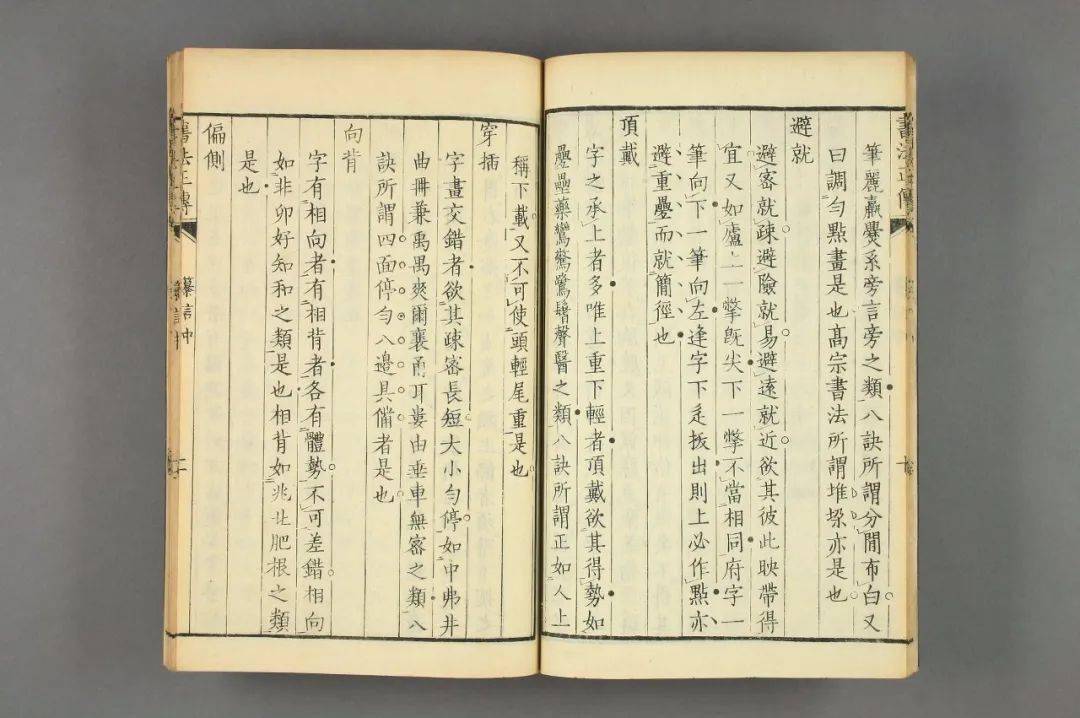 書法正傳
筆麗嬴爨系旁言旁之類八訣所謂分間布白又
曰調勻點畫是也高宗書法所謂堆垜亦是也
避就
避密就疎避險就易避遠就近欲其彼此映帶得
宜又如廬上一撆旣尖下一撆不當相同府字一
筆向下一筆向左逢字下辵拔出則上必作點亦
避重疊而就簡徑也
頂戴
字之承上者多唯上重下輕者頂戴欲其得勢如
疊壘藥鸞驚鷺鬙聲醫之類八訣所謂正如人上
稱下載又不可使頭輕尾重是也
穿插
字畫交錯者欲其疎密長短大小勻停如中弗井
曲冊兼禹禺爽爾襄甬耳婁由垂車無密之類八
訣所謂四面停勻八邊具備者是也
向背
字有相向者有相背者各有體勢不可差錯相向
如非卯好知和之類是也相背如兆北肥根之類
是也
偏側
書法正傳
纂言中